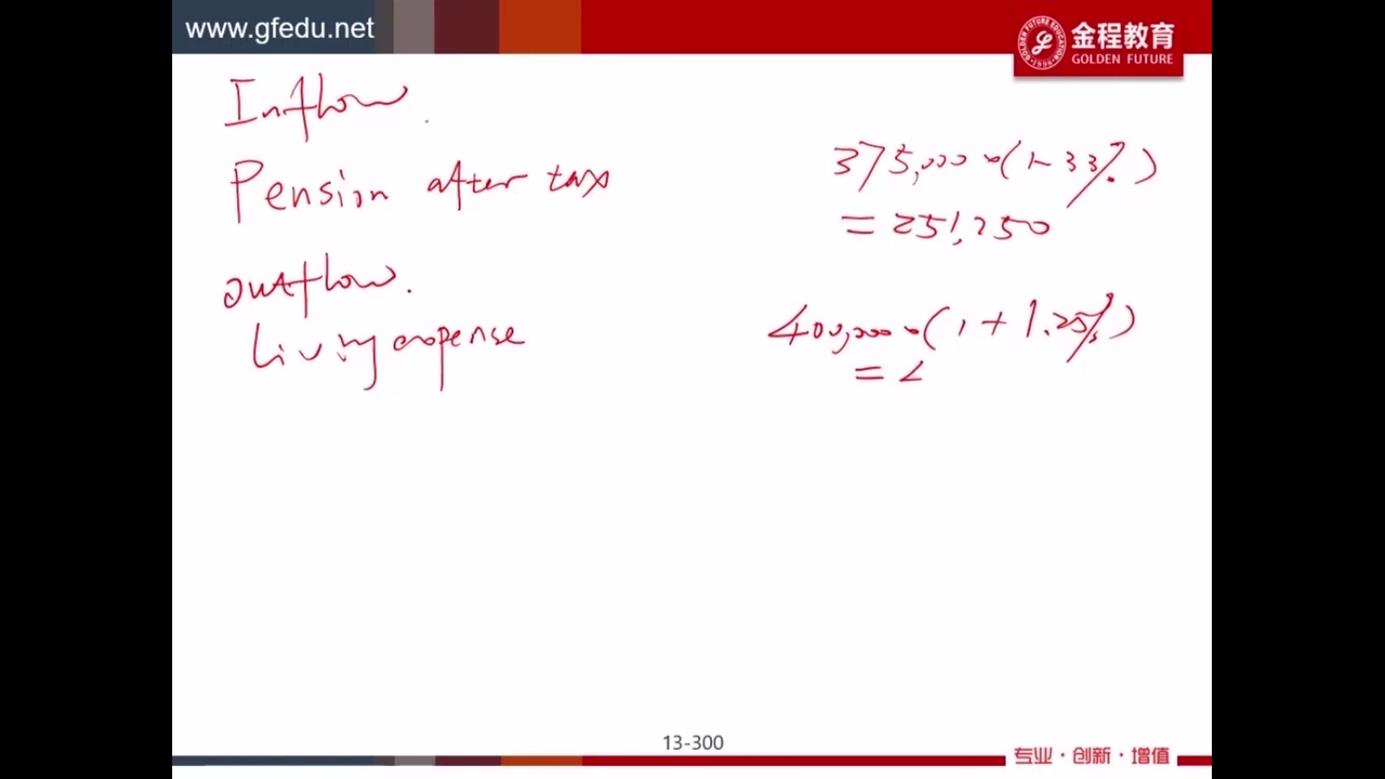 www.gfedu.net
金程教育
GOLDEN FUTURE
GOLDEN FUTURE EDUCATION
·1998·
Inflow.
Pension after tax
375,000×(1-33%)
=251,250
outflow.
living expense
400,000×(1+1.25%)
=4
13-300
专业·创新·增值